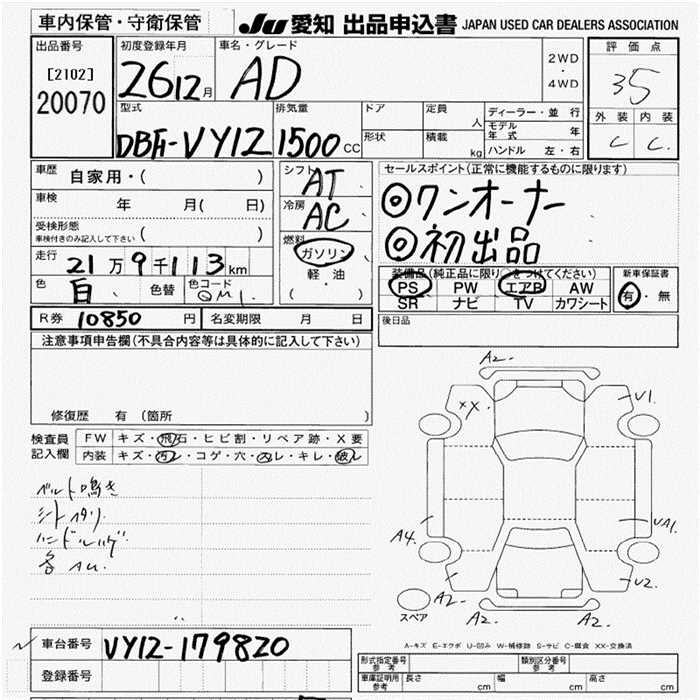 車内保管・守衛保管
JU 愛知 出品申込書 JAPAN USED CAR DEALERS ASSOCIATION
出品番号
[2102]
20070
初度登録年月
26 12月
車名・グレード
AD
2WD
・
4WD
評価点
35
外装 内装
C C
型式
DBF-VY12
排気量
1500 CC
ドア
形状
定員 人
積載 kg
ディーラー・並行
モデル年式 年
ハンドル 左・右
車歴 自家用・( )
車検 年 月( 日)
受検形態
車検付きのみ記入して下さい ( )
走行 21万9千113km
色 白 色替 色コード QM1
シフト AT
冷房 AC
燃料
ガソリン
軽油
( )
セールスポイント(正常に機能するものに限ります)
◎ワンオーナー
◎初出品
装備品(純正品に限り○をつけてください)
PS PW エアB AW
SR ナビ TV カワシート
新車保証書
有・無
R券 10850 円 名変期限 月 日
後日品
注意事項申告欄(不具合内容等は具体的に記入して下さい)
修復歴 有 (箇所 )
検査員記入欄
FW キズ・飛石・ヒビ割・リペア跡・X要
内装 キズ・汚レ・コゲ・穴・スレ・キレ・破レ
ベルト鳴き
シートスワリ
ハンドルハゲ
各AU.
A2.
XX
U1
A4.
UA1.
A2.
U2.
A2.
A2.
スペア
A-キズ E-エクボ U-凹み W-補修跡 S-サビ C-腐食 XX-交換済
車台番号 VY12-179820
登録番号
形式指定番号参考
類別区分番号参考
車庫証明用参考 長さ cm 幅 cm 高さ cm